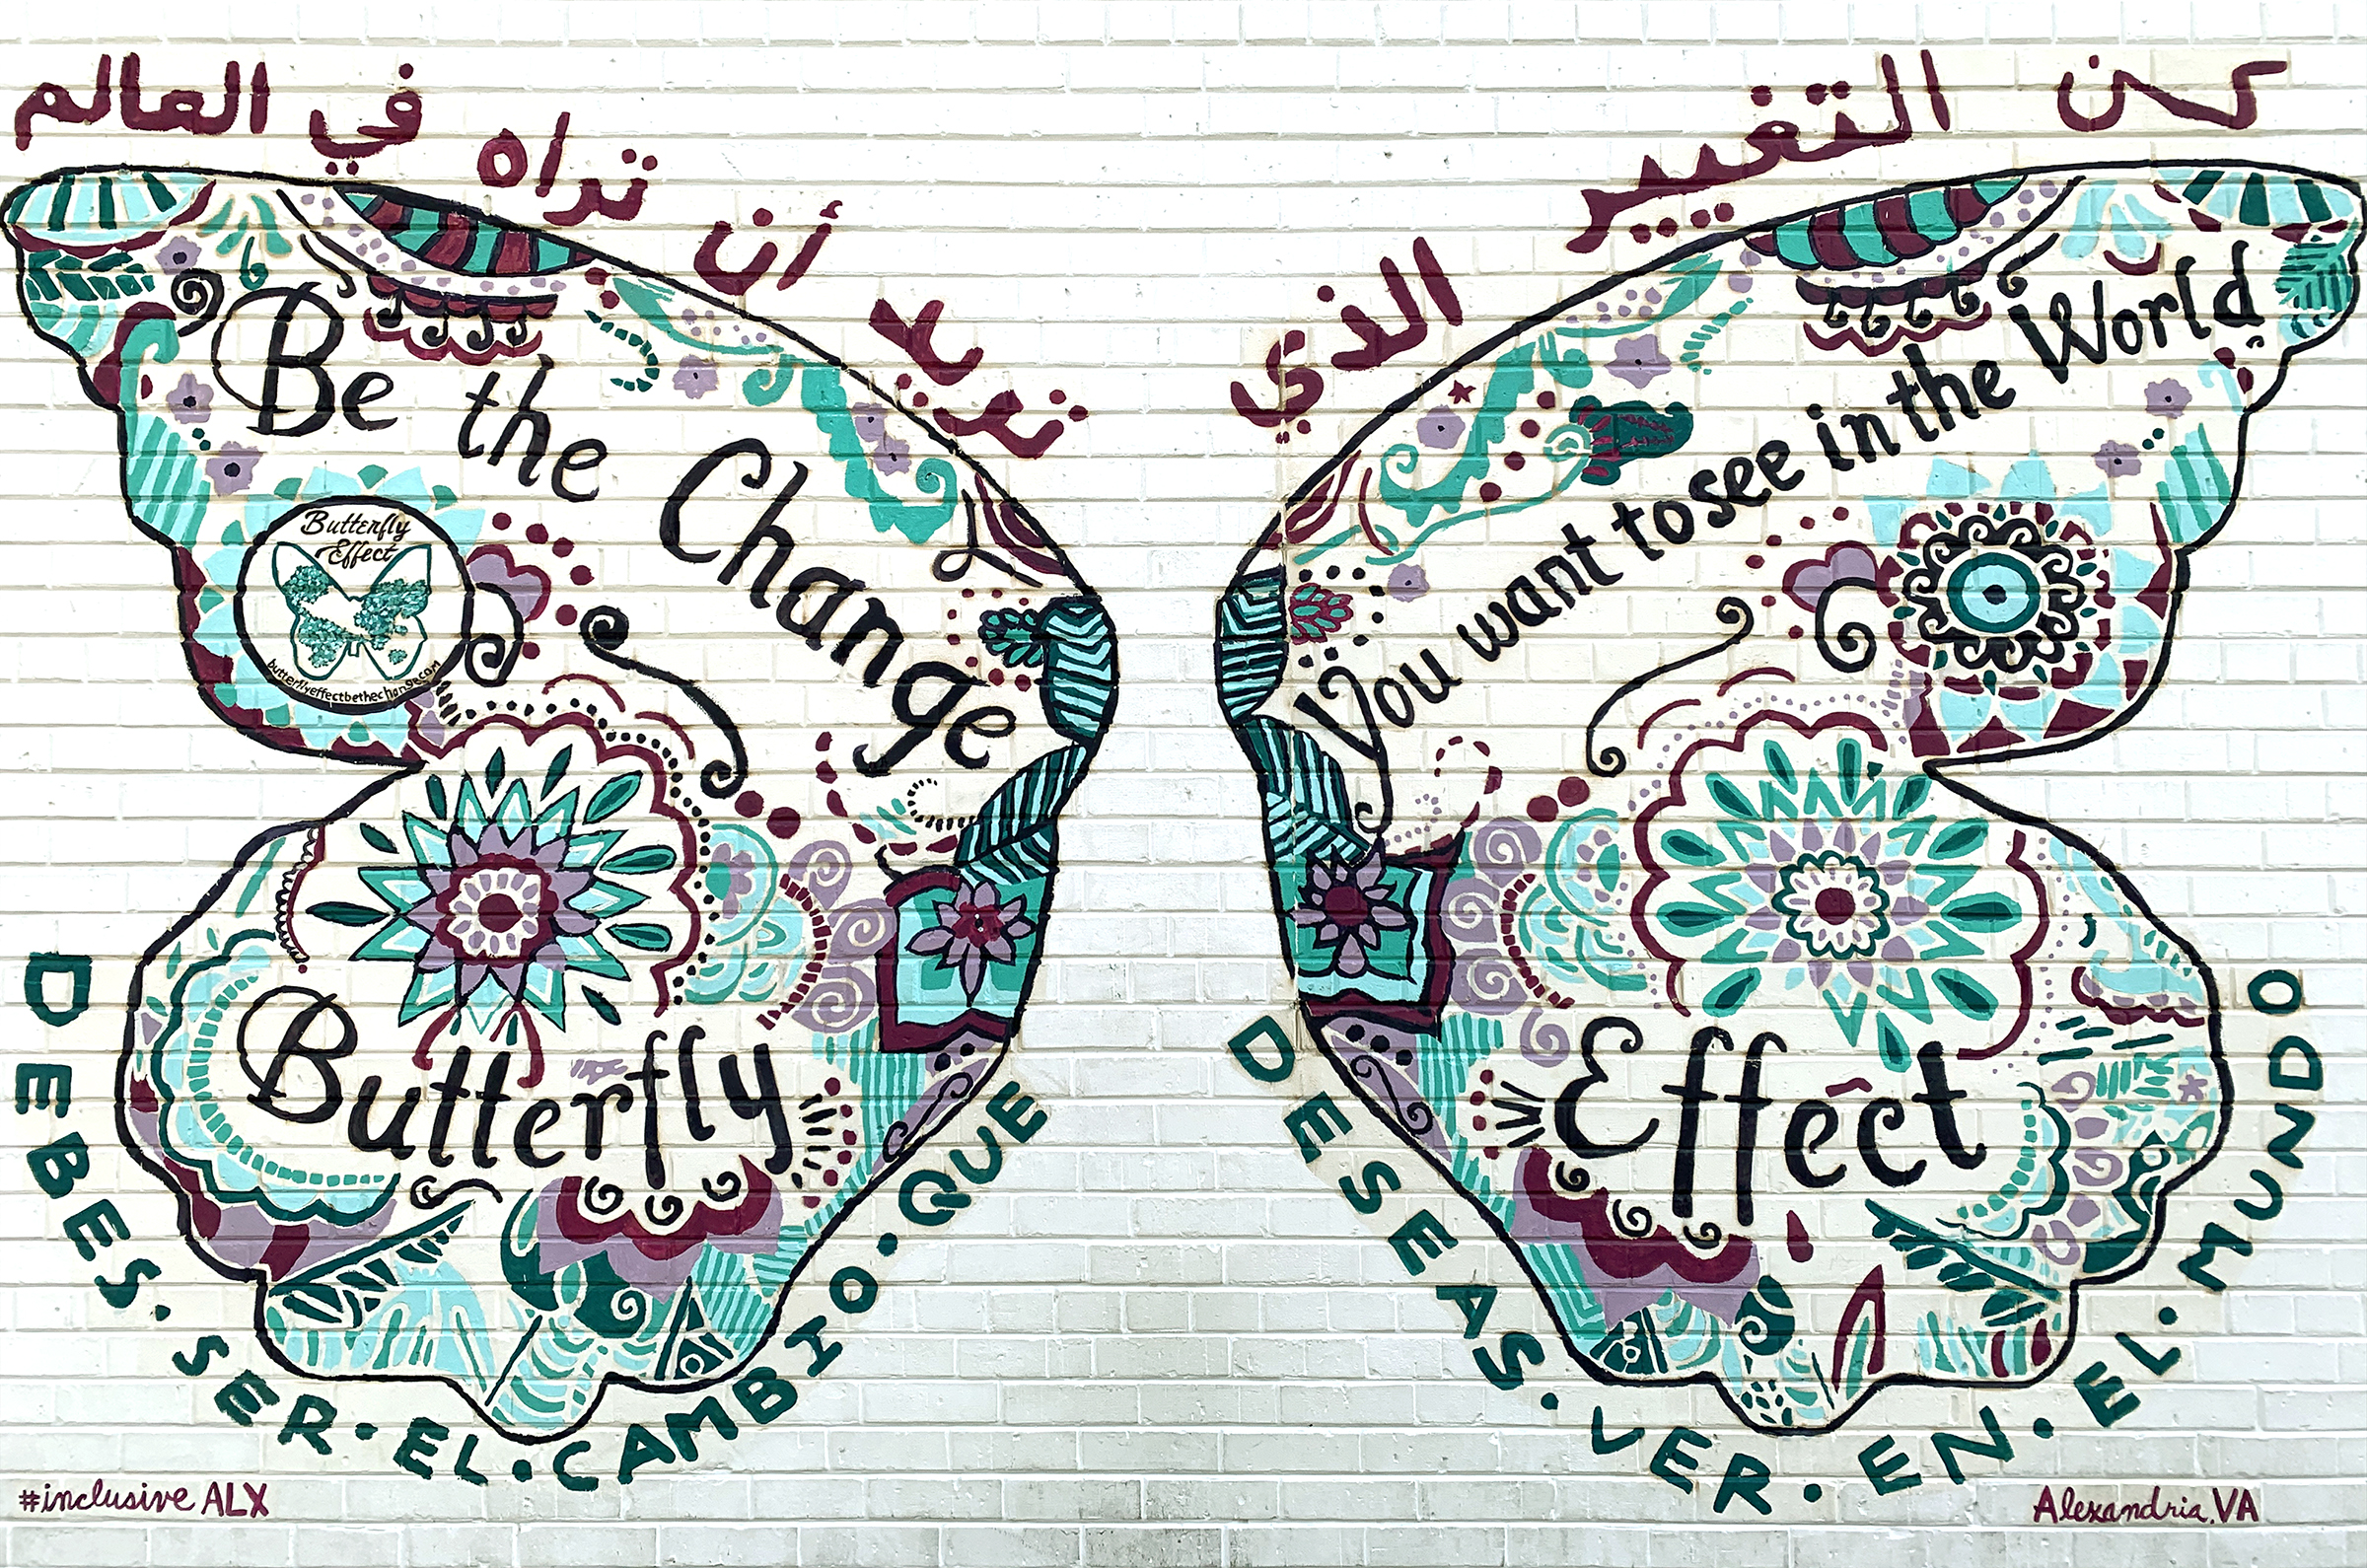 كن التغيير الذي
تريد أن تراه في العالم
Be the Change
You want to see in the World
Butterfly
Effect
butterflyeffectbethechange.com
Butterfly
Effect
DEBES·SER·EL·CAMBIO·QUE
DESEAS·VER·EN·EL·MUNDO
#inclusive ALX
Alexandria, VA